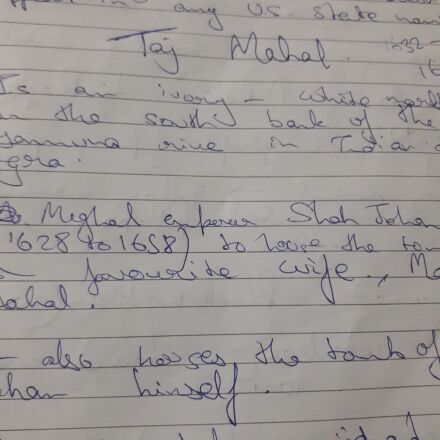 in any US. state nam
Taj Mahal. 1632 -
Is an ivory - white
on the south bank of the
yamuna rive in Indian
gra.
Meghal emperer Shah Jahan
1628 to 1658) to house the tom
favourite wife,, M
ahal.
- also houses the tomb of
han himself.